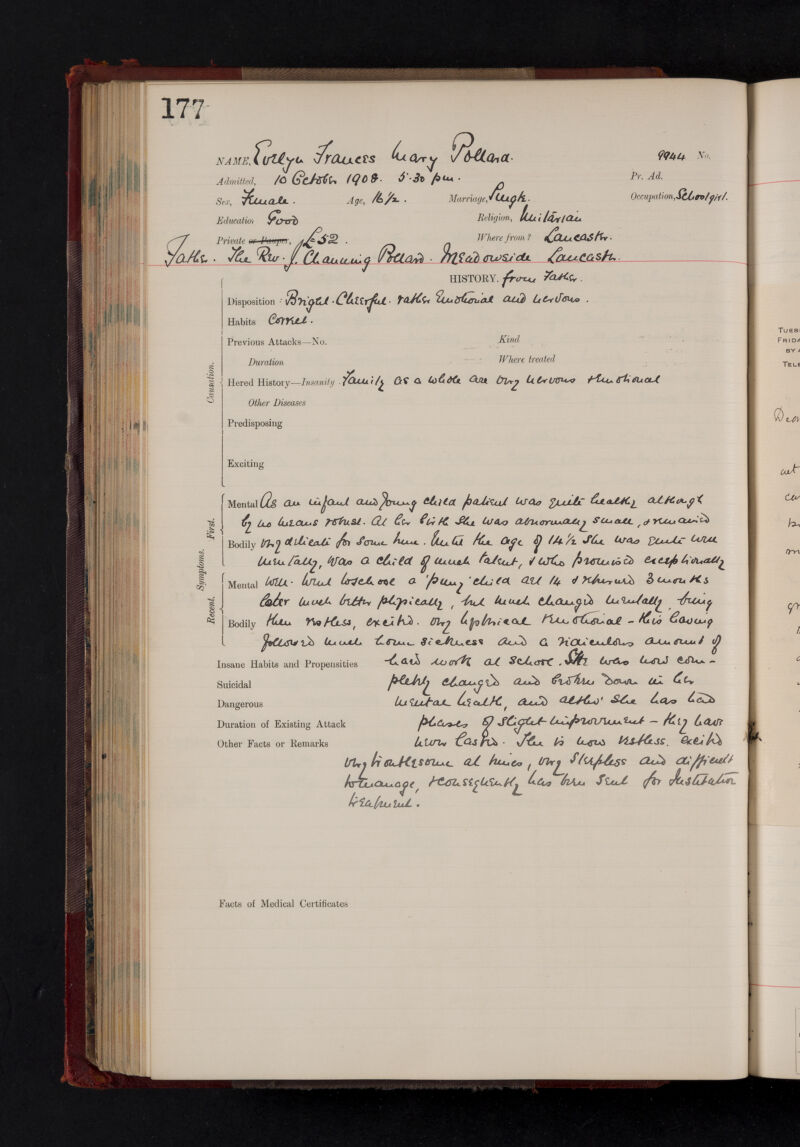 177
NAME, Evelyn Frances Mary Pollard. 9944 No.
Admitted, 10 October 1908. 5.30 pm. Pr. Ad.
Sex, Female. Age, 16½. Marriage, Single. Occupation, Schoolgirl.
Education Good Religion, Unitarian
Private or Pauper, £52. Where from? Lancaster.
Father. The Rev. J. Channing Pollard. Meadowside Lancaster.
HISTORY. from Father.
Disposition: Bright. Cheerful. rather Emotional and nervous.
Habits Correct.
Previous Attacks—No. Kind
Duration Where treated
Causation.
Hered History—Insanity. Family as a whole are very nervous & emotional
Other Diseases
Predisposing
Exciting
Symptoms.
First.
Mental As an infant and young child patient was quite healthy although
by no means robust. At her birth she was abnormally small, & remained
Bodily very delicate for some time. Until the age of 14½ she was quite well
mentally, was a child of much talent, & who promised exceptionally
Recent.
Mental well. Went to school a 'puny' child at 14 & returned 3 months
later much better physically, but much changed mentally, being
Bodily then restless, excited. very hysterical & emotional - this having
followed much home sickness and a ridiculous amount of
Insane Habits and Propensities hard work at school. She was now com-
Suicidal pletely changed and broken down in her
Dangerous mental health, and altho' she has had
Duration of Existing Attack phases of slight improvement - they have
Other Facts or Remarks never lasted. She is now restless. excited
very troublesome at times, very sleepless and difficult
to manage, & consequently has been sent for Institution
treatment.
Facts of Medical Certificates
TUES
FRIDA
BY
TELE